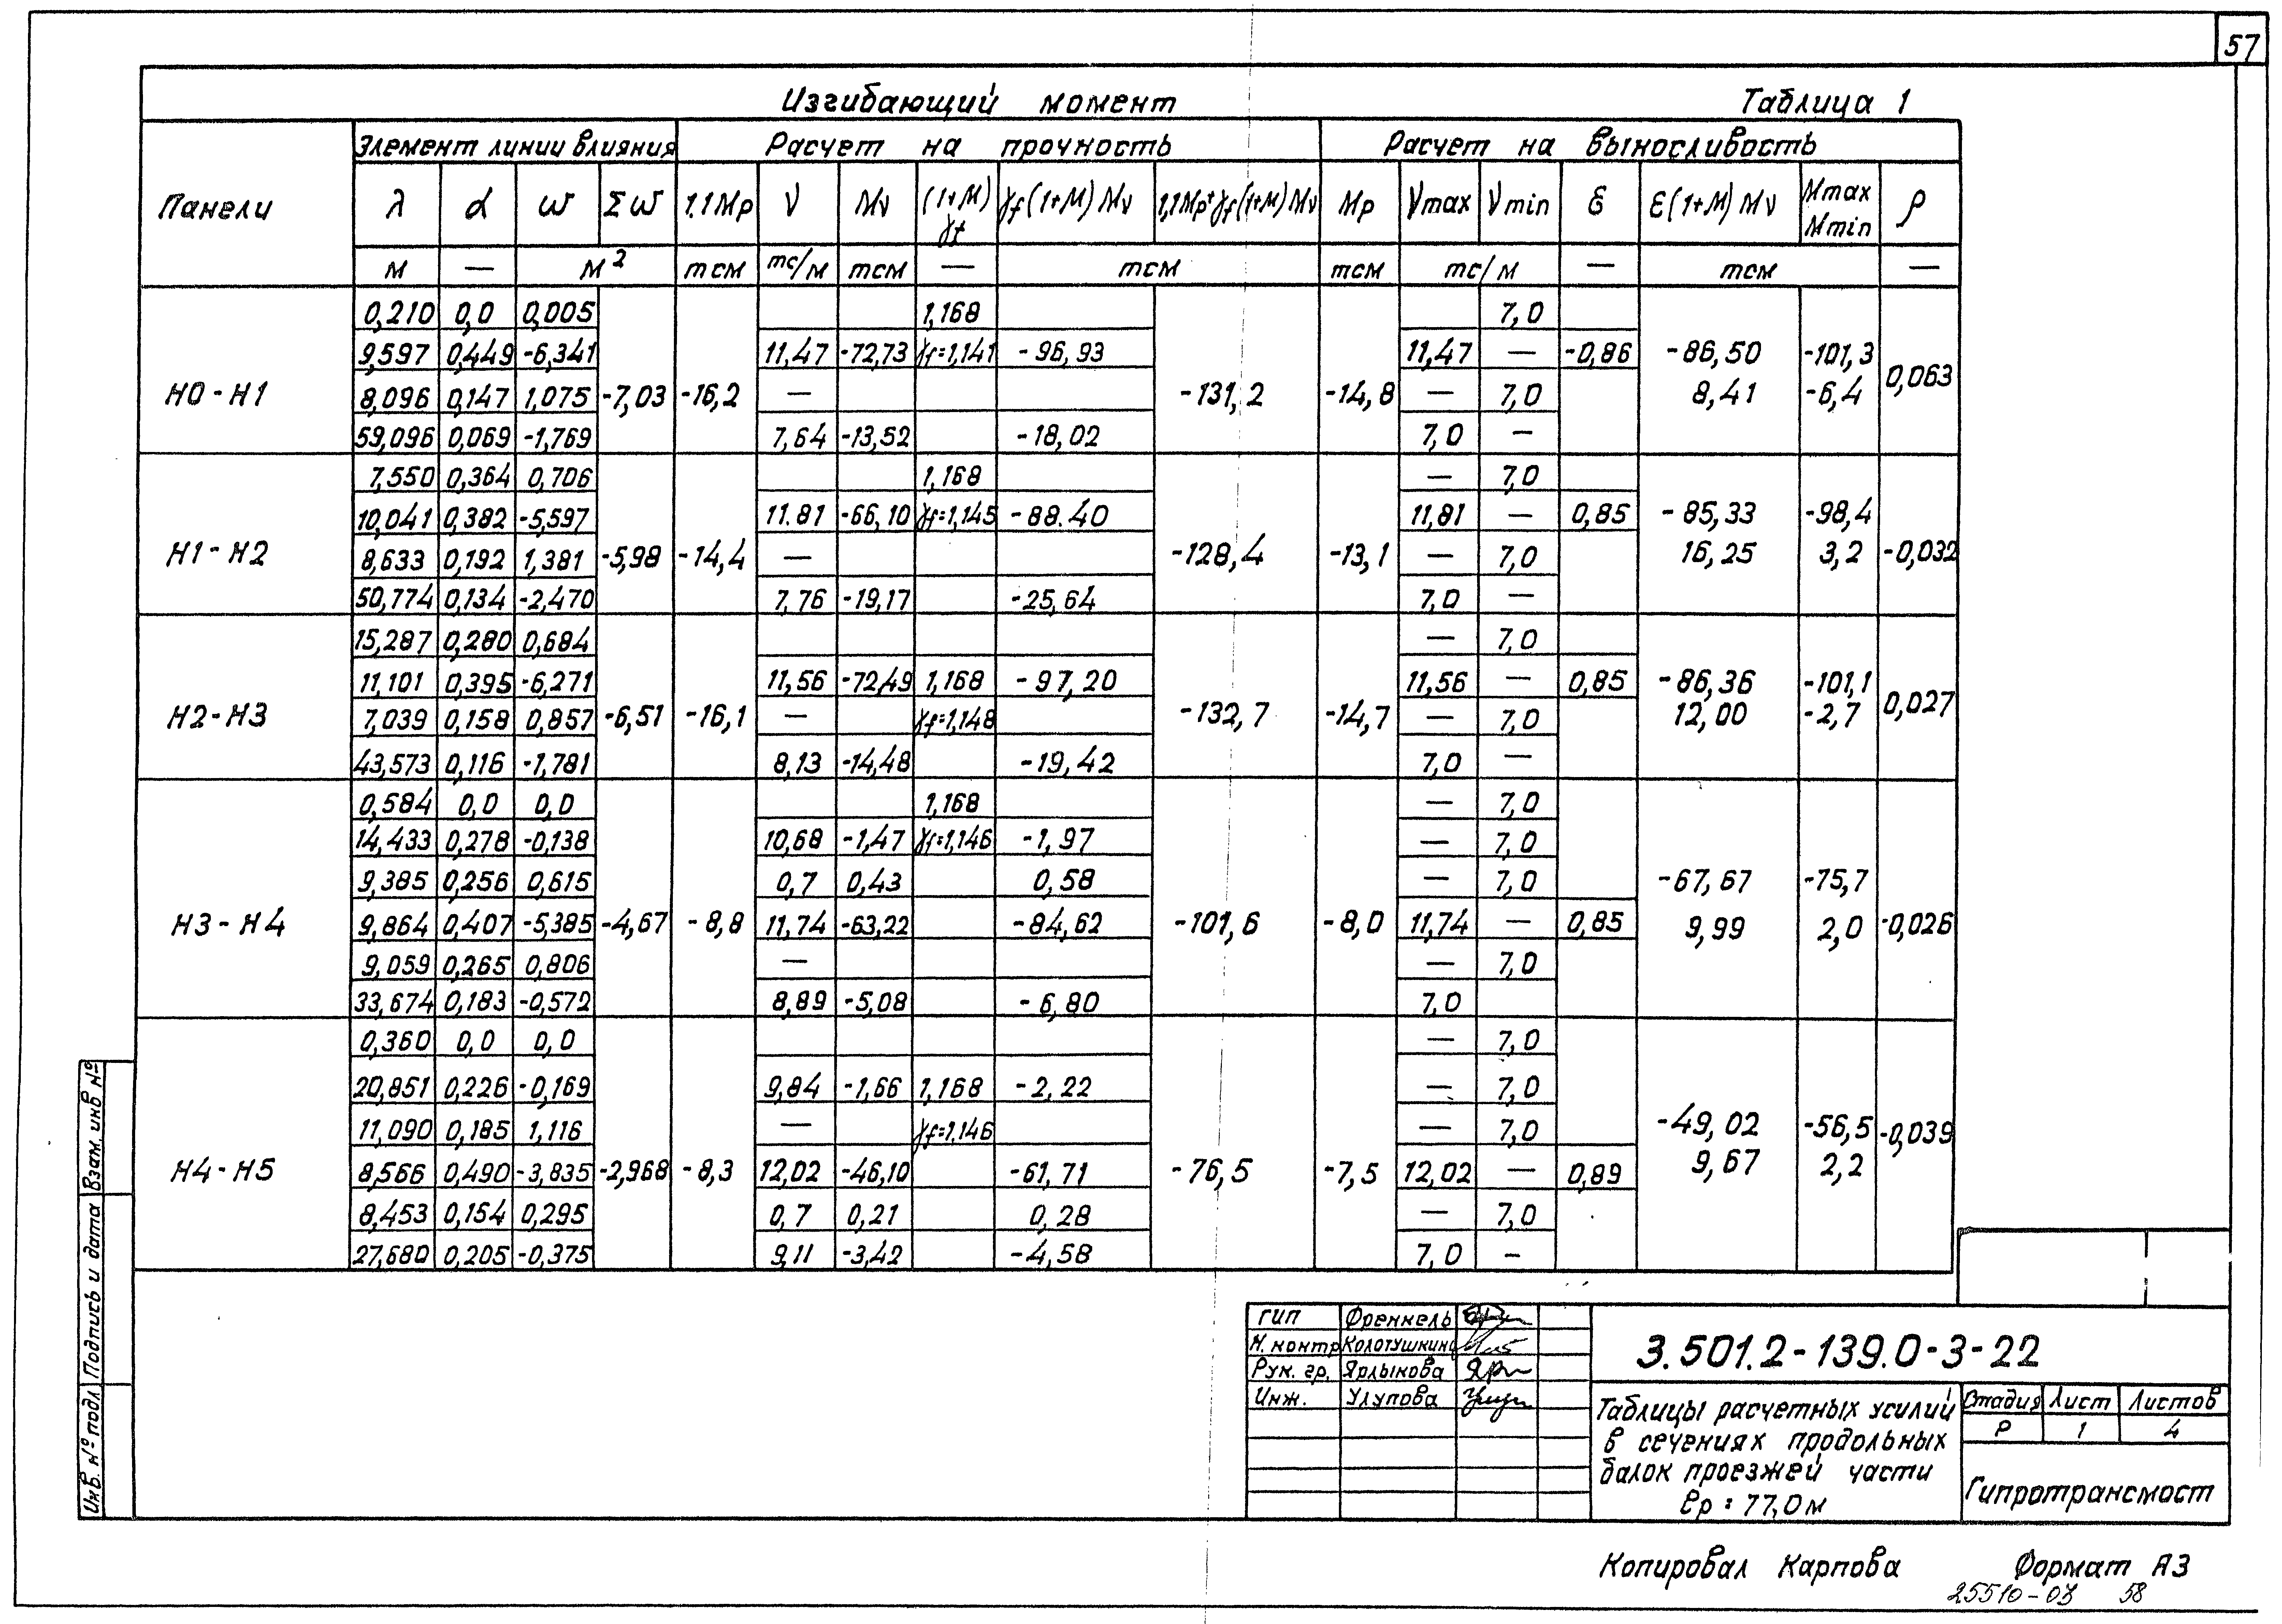 57
Изгибающий момент Таблица 1
Панели Элемент линии влияния Расчет на прочность Расчет на выносливость
λ α ω Σω 1.1Мр ν Мν (1+М) γf γf(1+М)Мν 1,1Мр+γf(1+М)Мν Мр νmax νmin ε ε(1+М)Мν Mmax Mmin ρ
м — м² тсм тс/м тсм — тсм тсм тс/м — тсм —
0,210 0,0 0,005 1,168 7,0
9,597 0,449 -6,341 11,47 -72,73 γf=1,141 -96,93 11,47 — -0,86 -86,50 -101,3
Н0-Н1 8,096 0,147 1,075 -7,03 -16,2 — -131,2 -14,8 — 7,0 8,41 -6,4 0,063
59,096 0,069 -1,769 7,64 -13,52 -18,02 7,0 —
7,550 0,364 0,706 1,168 — 7,0
10,041 0,382 -5,597 11.81 -66,10 γf=1,145 -88.40 11,81 — 0,85 -85,33 -98,4
Н1-Н2 8,633 0,192 1,381 -5,98 -14,4 — -128,4 -13,1 — 7,0 16,25 3,2 -0,032
50,774 0,134 -2,470 7,76 -19,17 -25,64 7,0 —
15,287 0,280 0,684 — 7,0
11,101 0,395 -6,271 11,56 -72,49 1,168 -97,20 11,56 — 0,85 -86,36 -101,1
Н2-Н3 7,039 0,158 0,857 -6,51 -16,1 — γf=1,148 -132,7 -14,7 — 7,0 12,00 -2,7 0,027
43,573 0,116 -1,781 8,13 -14,48 -19,42 7,0 —
0,584 0,0 0,0 1,168 — 7,0
14,433 0,278 -0,138 10,68 -1,47 γf=1,146 -1,97 — 7,0
9,385 0,256 0,615 0,7 0,43 0,58 — 7,0 -67,67 -75,7
Н3-Н4 9,864 0,407 -5,385 -4,67 -8,8 11,74 -63,22 -84,62 -101,6 -8,0 11,74 — 0,85 9,99 2,0 -0,026
9,059 0,265 0,806 — — 7,0
33,674 0,183 -0,572 8,89 -5,08 -6,80 7,0
0,360 0,0 0,0 — 7,0
20,851 0,226 -0,169 9,84 -1,66 1,168 -2,22 — 7,0
11,090 0,185 1,116 — γf=1,146 — 7,0 -49,02 -56,5 -0,039
Н4-Н5 8,566 0,490 -3,835 -2,968 -8,3 12,02 -46,10 -61,71 -76,5 -7,5 12,02 — 0,89 9,67 2,2
8,453 0,154 0,295 0,7 0,21 0,28 — 7,0
27,680 0,205 -0,375 9,11 -3,42 -4,58 7,0 -
Взам. инв №
Подпись и дата
Инв. № подл
ГИП Френкель
Н. контр Колотушкин
Рук. гр. Ярлыкова
Инж. Улупова
3.501.2-139.0-3-22
Таблицы расчетных усилий
в сечениях продольных
балок проезжей части
ℓр = 77,0м
Стадия Лист Листов
Р 1 4
Гипротрансмост
Копировал Карпова Формат А3
25510-03 58